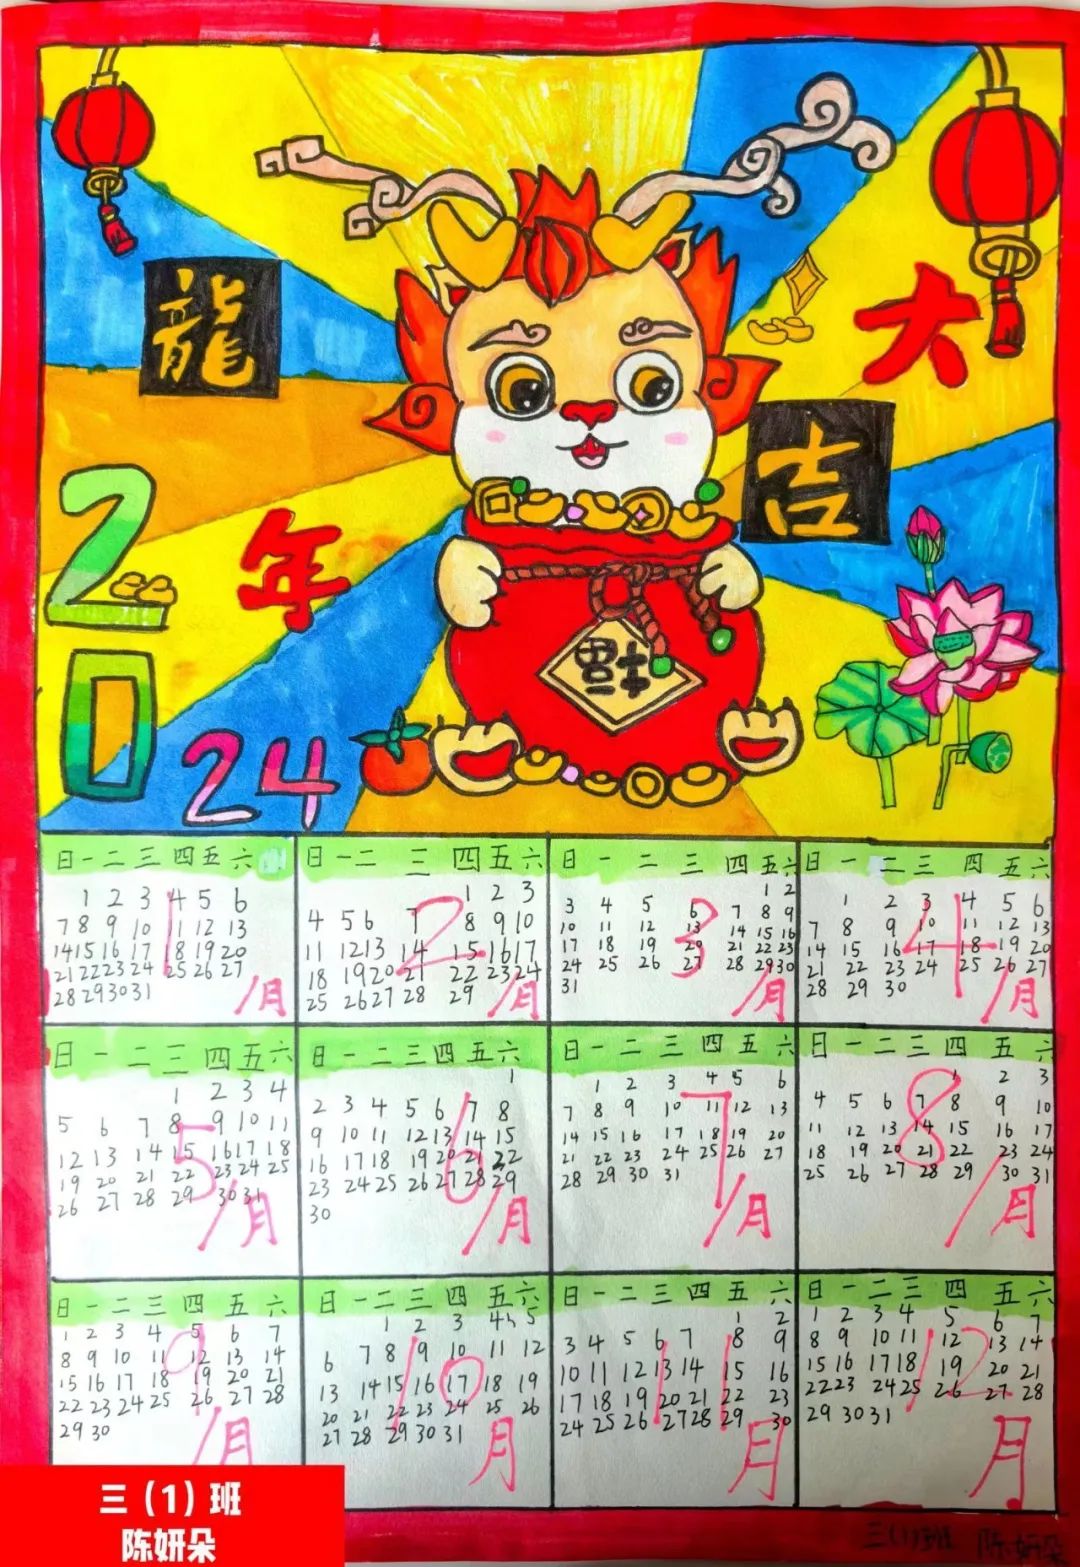 龍
大
吉
2
年
0
24
福
日 一 二 三 四 五 六
1 2 3 4 5 6
7 8 9 10 11 12 13
14 15 16 17 18 19 20
21 22 23 24 25 26 27
28 29 30 31
1/月
日 一 二 三 四 五 六
1 2 3
4 5 6 7 8 9 10
11 12 13 14 15 16 17
18 19 20 21 22 23 24
25 26 27 28 29
2/月
日 一 二 三 四 五 六
1 2
3 4 5 6 7 8 9
10 11 12 13 14 15 16
17 18 19 20 21 22 23
24 25 26 27 28 29 30
31
3/月
日 一 二 三 四 五 六
1 2 3 4 5 6
7 8 9 10 11 12 13
14 15 16 17 18 19 20
21 22 23 24 25 26 27
28 29 30
4/月
日 一 二 三 四 五 六
1 2 3 4
5 6 7 8 9 10 11
12 13 14 15 16 17 18
19 20 21 22 23 24 25
26 27 28 29 30 31
5/月
日 一 二 三 四 五 六
1
2 3 4 5 6 7 8
9 10 11 12 13 14 15
16 17 18 19 20 21 22
23 24 25 26 27 28 29
30
6/月
日 一 二 三 四 五 六
1 2 3 4 5 6
7 8 9 10 11 12 13
14 15 16 17 18 19 20
21 22 23 24 25 26 27
28 29 30 31
7/月
日 一 二 三 四 五 六
1 2 3
4 5 6 7 8 9 10
11 12 13 14 15 16 17
18 19 20 21 22 23 24
25 26 27 28 29 30 31
8/月
日 一 二 三 四 五 六
1 2 3 4 5 6 7
8 9 10 11 12 13 14
15 16 17 18 19 20 21
22 23 24 25 26 27 28
29 30
9/月
日 一 二 三 四 五 六
1 2 3 4 5
6 7 8 9 10 11 12
13 14 15 16 17 18 19
20 21 22 23 24 25 26
27 28 29 30 31
10月
日 一 二 三 四 五 六
1 2
3 4 5 6 7 8 9
10 11 12 13 14 15 16
17 18 19 20 21 22 23
24 25 26 27 28 29 30
11月
日 一 二 三 四 五 六
1 2 3 4 5 6 7
8 9 10 11 12 13 14
15 16 17 18 19 20 21
22 23 24 25 26 27 28
29 30 31
12月
三（1）班
陈妍朵
三(1)班 陈妍朵